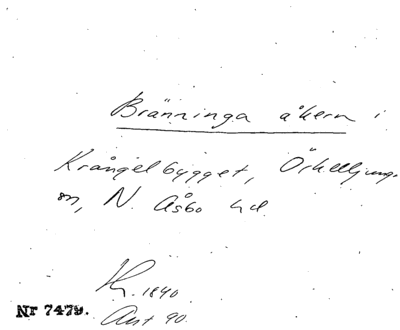 Bränninga åkern i
Krångelbygget, Örkelljunga
sn, N. Åsbo hd.
1840
Avst 90.
Nr 7479.